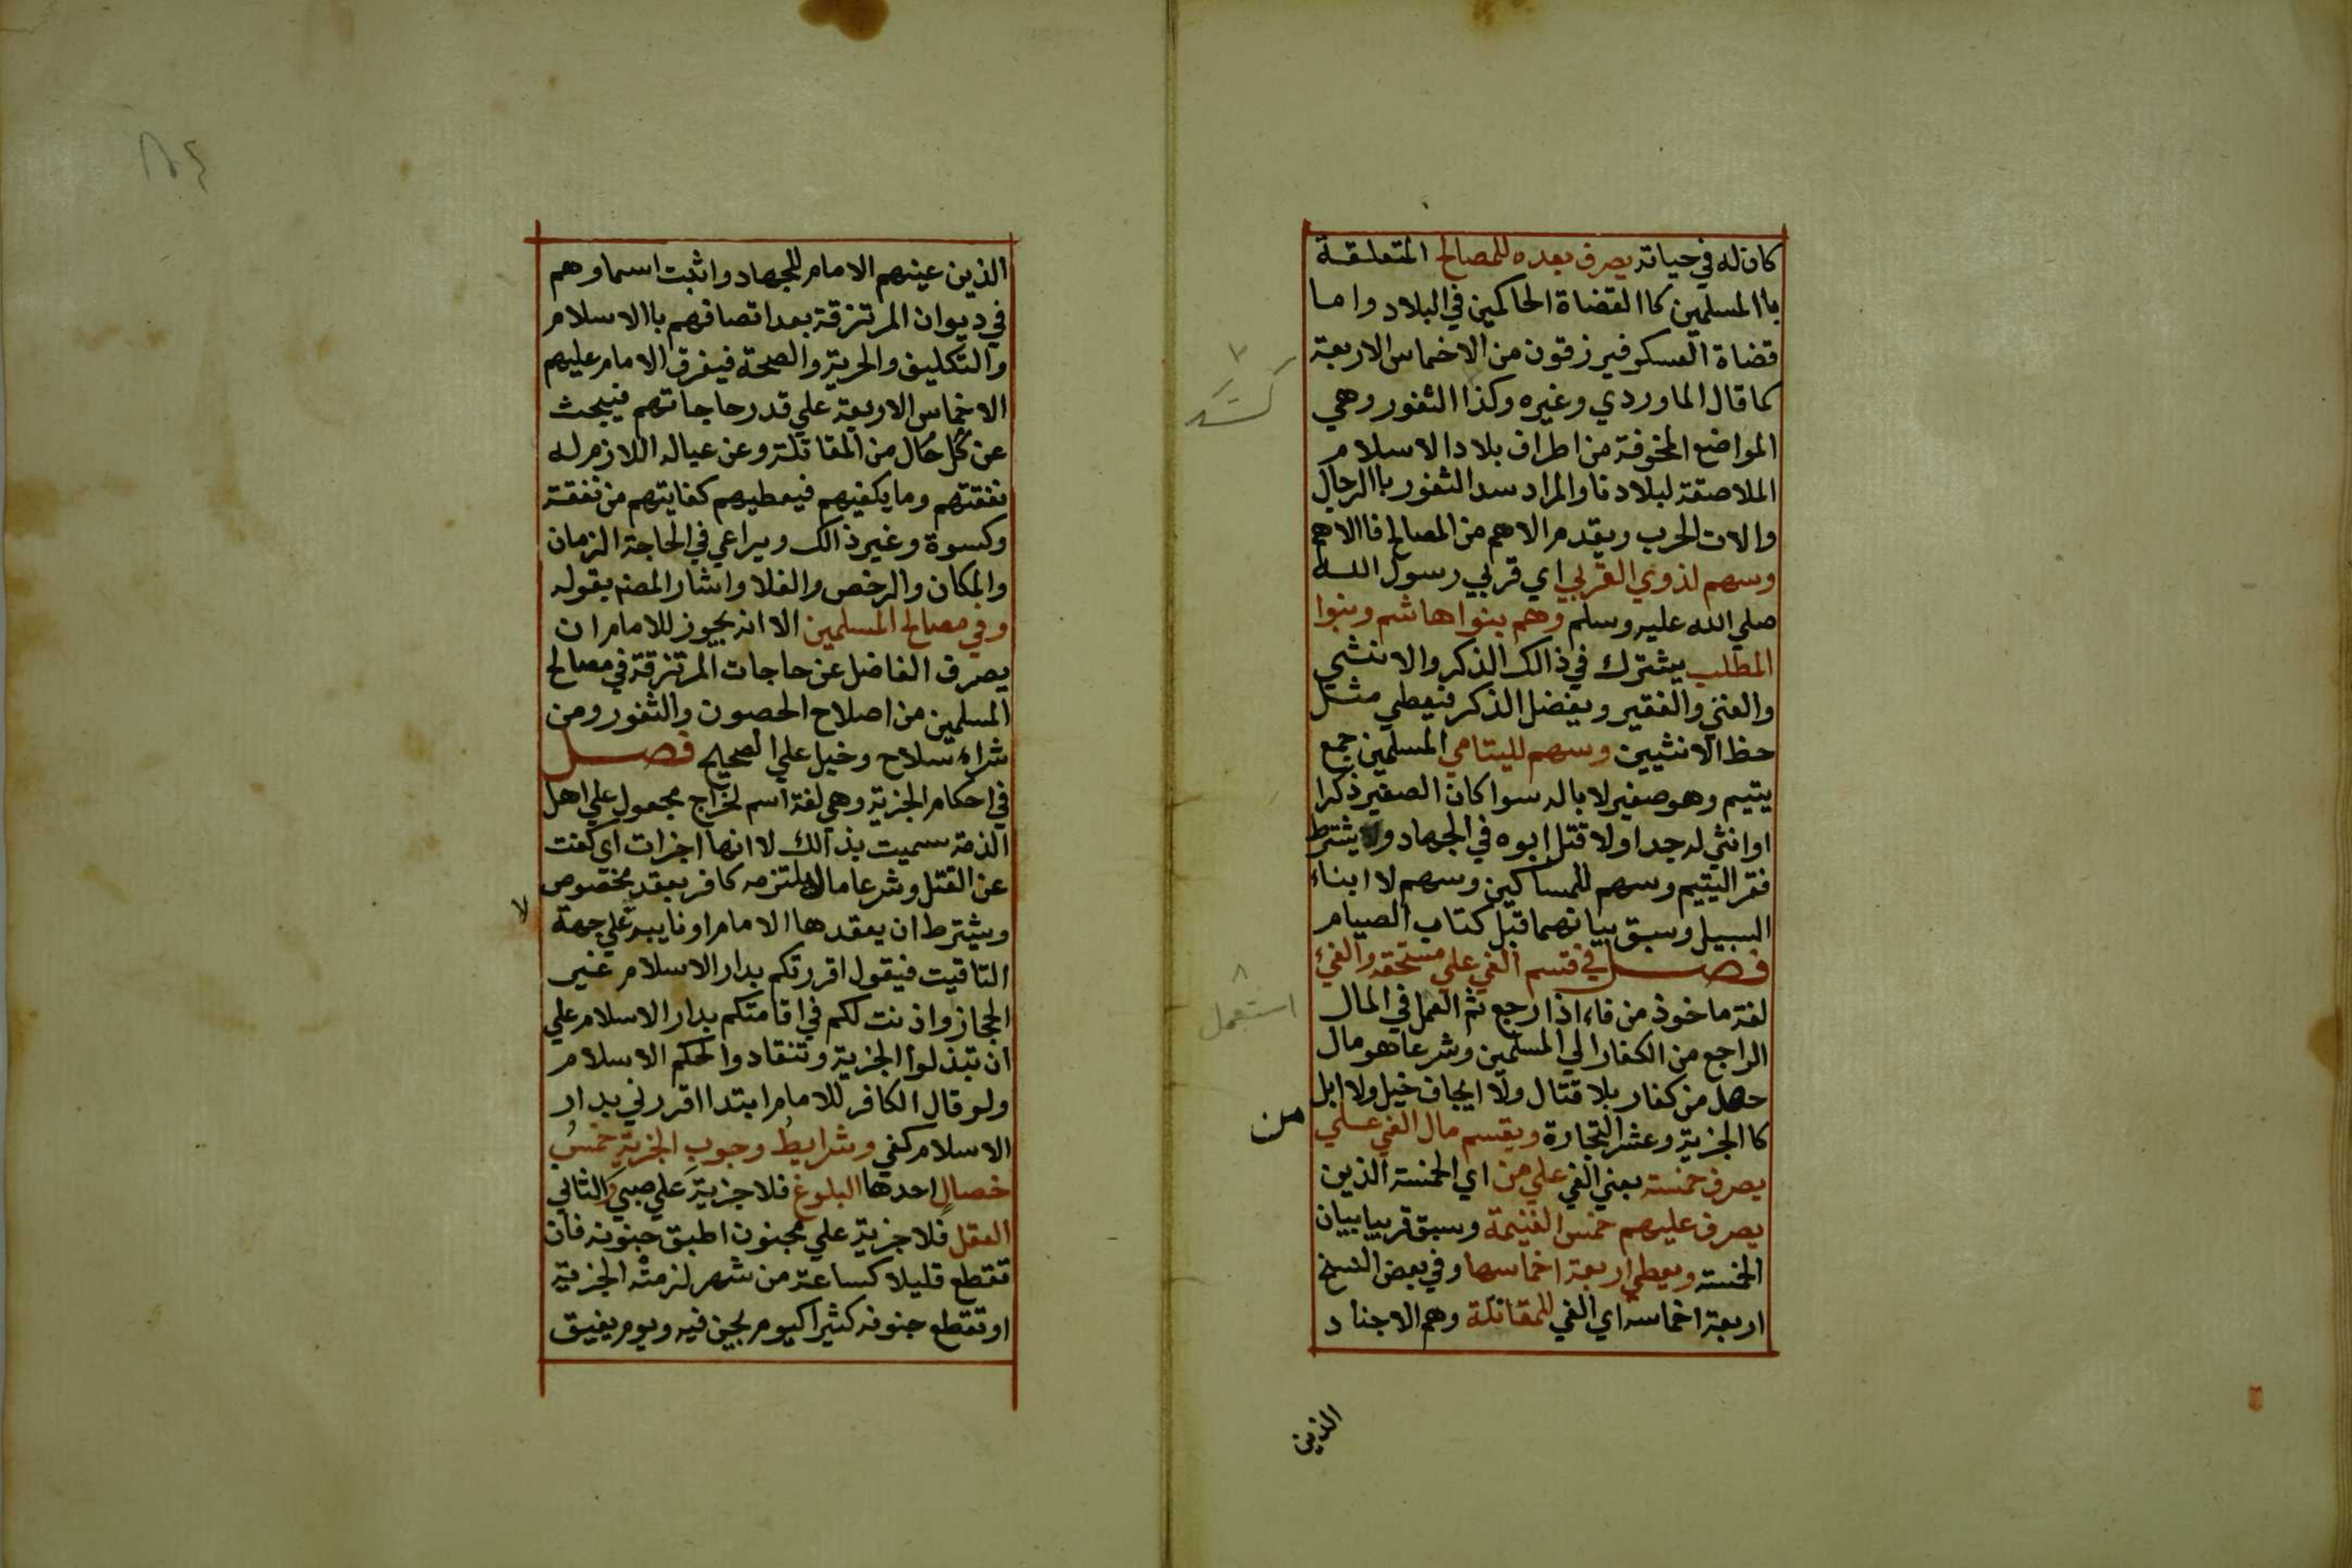 كان له في حياته يصرف بعده للمصالح المتعلقة
باالمسلمين كاالقضاة الحاكمين في البلاد واما
قضاة العسكر فيرزقون من الاخماس الاربعة
كما قال الماوردي وغيره وكذا الثغور وهي
المواضع المخوفة من اطراف بلاد الاسلام
الملاصقة لبلادنا والمراد سد الثغور باالرجال
والات الحرب ويقدم الاهم من المصالح فاالاهم
وسهم لذوي القربي اي قربي رسول الله
صلي الله عليه وسلم وهم بنوا هاشم وبنوا
المطلب يشترك في ذالك الذكر والانثي
والغني والفقير ويفضل الذكر فيعطي مثل
حظ الانثيين وسهم لليتامي المسلمين جمع
يتيم وهو صغير لا باله سوا كان الصغير ذكرا
او انثي له جد او لا قتل ابوه في الجهاد ولا يشترط
فقر اليتيم وسهم للمساكين وسهم لا ابناء
السبيل وسبق بيانهما قبل كتاب الصيام
فصل في قسم الفي علي مستحقه والفيء
لغة ماخوذ من فاء اذا رجع ثم العمل في المال
استعمل
الراجع من الكفار الي المسلمين وشرعا هو مال
حصل من كفار بلا قتال ولا ايجاف خيل ولا ابل
كاالجزية وعشر التجارة ويقسم مال الفي علي
من
يصرف خمسه يعني الفي علي من اي الخمسة الذين
يصرف عليهم خمس الغنيمة وسبق قريبا بيان
الخمسة ويعطي اربعة اخماسها وفي بعض النسخ
اربعة اخماسه اي الفي للمقاتلة وهم الاجناد
الذين
٨٤
الذين عينهم الامام للجهاد واثبت اسماوهم
في ديوان المرتزقة بعد اتصافهم باالاسلام
والتكليف والحرية والصحة فيفرق الامام عليهم
الاخماس الاربعة علي قدر حاجاتهم فيبحث
عن كل حال من المقاتلة وعن عياله اللازم له
نفقتهم وما يكفيهم فيعطيهم كفايتهم من نفقة
وكسوة وغير ذالك ويراعي في الحاجة الزمان
والمكان والرخص والغلا واشار المصنه بقوله
وفي مصالح المسلمين الا انه يجوز للامام ان
يصرف الفاضل عن حاجات المرتزقة في مصالح
المسلمين من اصلاح الحصون والثغور ومن
شراء سلاح وخيل علي الصحيح فصل
في احكام الجزية وهي لغة اسم لخراج مجعول علي اهل
الذمة سميت بذالك لا انها اجزات اي كفت
عن القتل وشرعا مال يلتزمه كافر بعقد مخصوص
ويشترط ان يعقدها الامام او نايبه علي جهة
لا
التاقيت فيقول اقررتكم بدار الاسلام غير
الحجاز واذنت لكم في اقامتكم بدار الاسلام علي
ان تبذلوا الجزية وتنقادوا لحكم الاسلام
ولو قال الكافر للامام ابتدا اقررني بدار
الاسلام كفي وشرايط وجوب الجزية خمس
خصال احدها البلوغ فلا جزية علي صبي والثاني
العقل فلا جزية علي مجنون اطبق جنونه فان
تقطع قليلا كساعة من شهر لزمته الجزية
او تقطع جنونه كثيرا كيوم يجن فيه ويوم يفيق